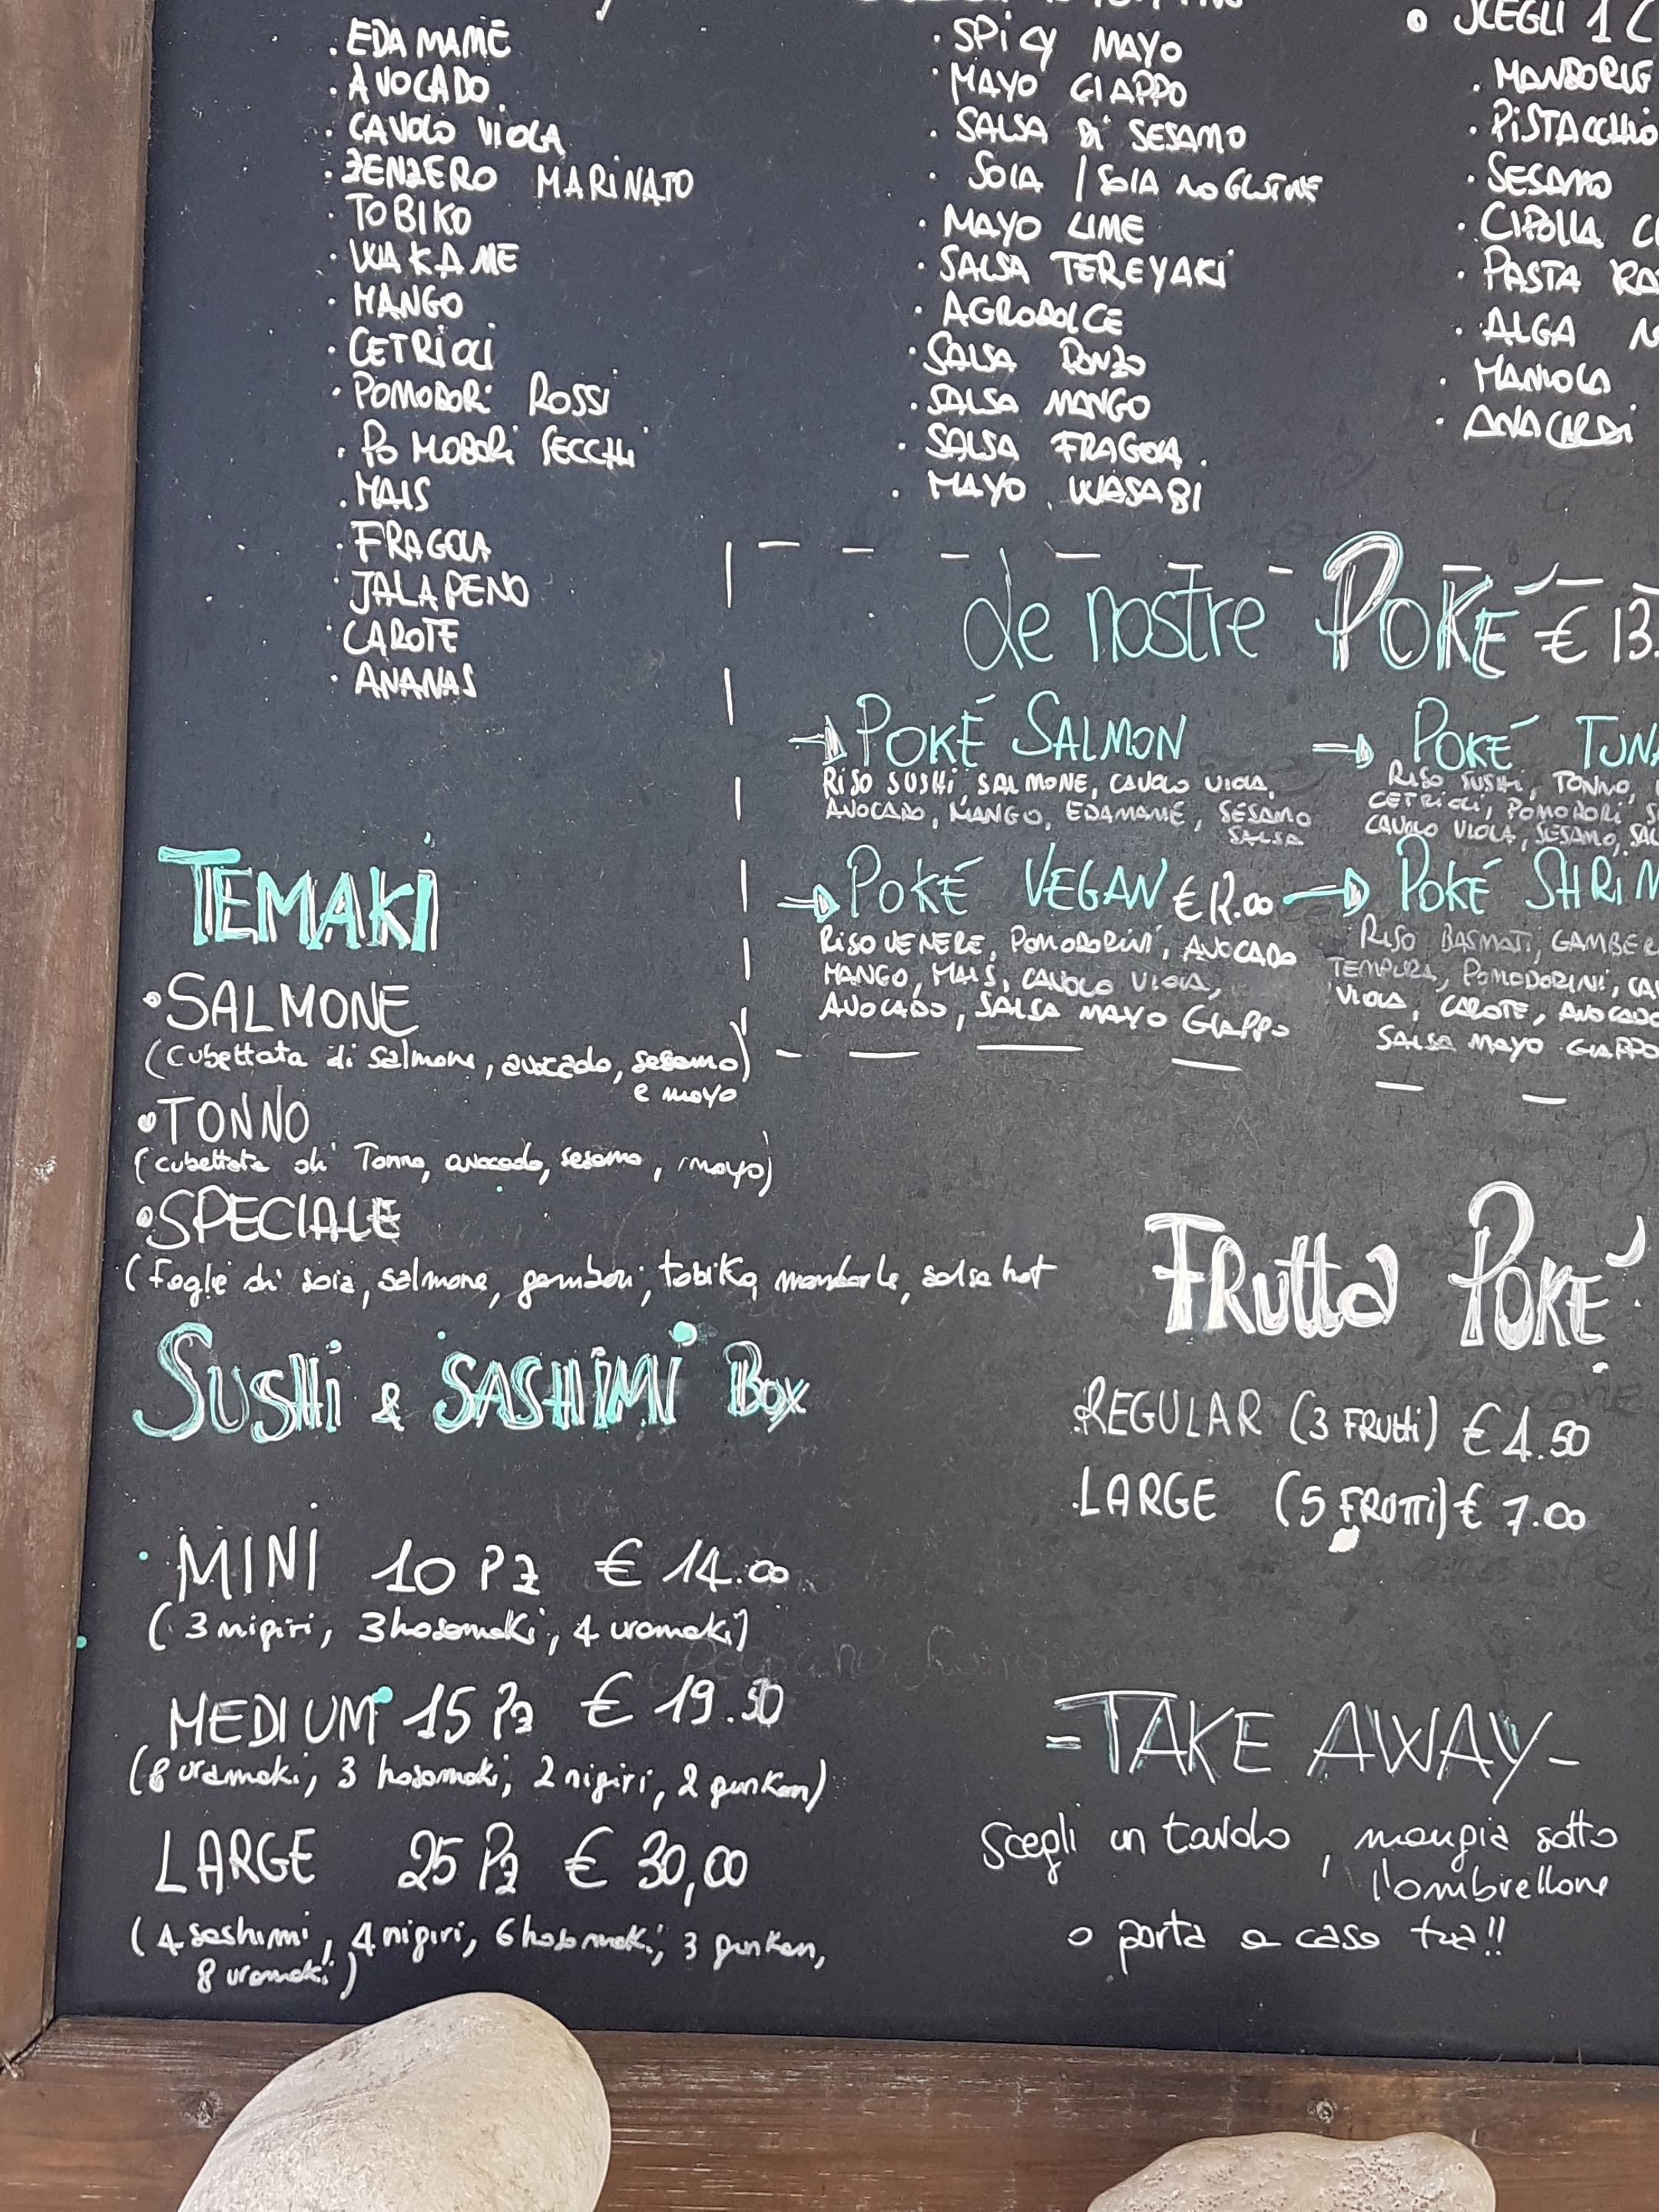 . EDAMAME
. AVOCADO
. CAVOLO VIOLA
. ZENZERO MARINATO
. TOBIKO
. WAKAME
. MANGO
. CETRIOLI
. POMODORI ROSSI
. POMODORI SECCHI
. MAIS
. FRAGOLA
. JALAPENO
. CAROTE
. ANANAS
. SPICY MAYO
. MAYO GIAPPO
. SALSA DI SESAMO
. SOIA / SOIA NO GLUTINE
. MAYO LIME
. SALSA TEREYAKI
. AGRODOLCE
. SALSA PONZO
. SALSA MANGO
. SALSA FRAGOLA
. MAYO WASABI
• SCEGLI 1 C
. MANDORLE
. PISTACCHIO
. SESAMO
. CIPOLLA C
. PASTA
. ALGA
. MANIOCA
. ANACARDI
le nostre POKÉ € 13.
→ POKÉ SALMON
RISO SUSHI, SALMONE, CAVOLO VIOLA,
AVOCADO, MANGO, EDAMAME, SESAMO
SALSA
→ POKÉ TUNA
RISO SUSHI, TONNO,
CETRIOLI, POMODORI
CAVOLO VIOLA, SESAMO, SAL
→ POKÉ VEGAN € 12.00
RISO VENERE, POMODORINI, AVOCADO
MANGO, MAIS, CAVOLO VIOLA,
AVOCADO, SALSA MAYO GIAPPO
→ POKÉ SHRIM
RISO BASMATI, GAMBER
TEMPURA, POMODORINI, CA
VIOLA, CAROTE, AVOCADO
SALSA MAYO GIAPPO
TEMAKI
• SALMONE
(cubettata di salmone, avocado, sesamo)
e mayo
• TONNO
(cubettata di Tonno, avocado, sesamo, mayo)
• SPECIALE
(foglie di soia, salmone, gamberi, tobiko, mandorle, salsa hot
SUSHI & SASHIMI BOX
. MINI 10 Pz € 14.00
(3 nigiri, 3 hosomaki, 4 uramaki)
MEDIUM 15 Pz € 19.50
(8 uramaki, 3 hosomaki, 2 nigiri, 2 gunkan)
LARGE 25 Pz € 30,00
(4 sashimi, 4 nigiri, 6 hosomaki, 3 gunkan,
8 uramaki)
FRUTTA POKÉ
. REGULAR (3 FRUTTI) € 4.50
. LARGE (5 FRUTTI) € 7.00
= TAKE AWAY -
Scegli un tavolo, mangia sotto
l'ombrellone
o porta a casa tua!!